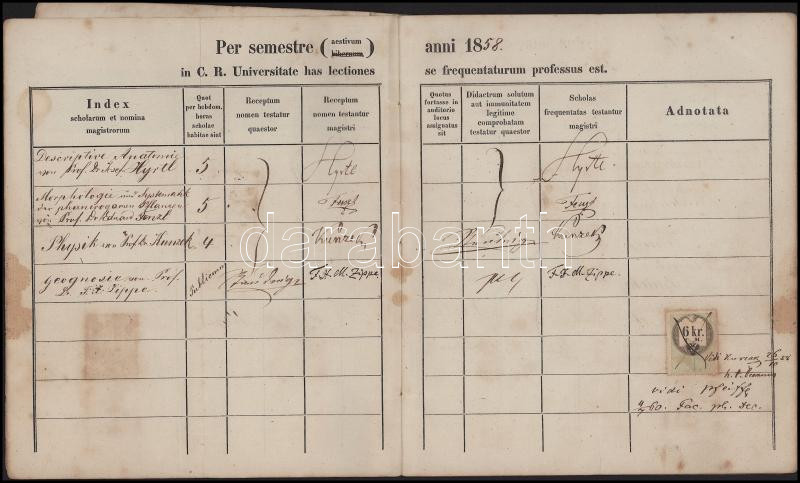 Per semestre (aestivum
hibernum)
anni 1858.
in C. R. Universitate has lectiones
se frequentaturum professus est.
Index
scholarum et nomina
magistrorum
Quot
per hebdom.
horas
scholae
habitae sint
Receptum
nomen testatur
quaestor
Receptum
nomen testantur
magistri
Quotus
fortasse in
auditorio
locus
assignatus
sit
Didactrum solutum
aut immunitatem
legitime
comprobatam
testatur quaestor
Scholas
frequentatas testantur
magistri
Adnotata
Descriptive Anatomie
von Prof. Dr. Josef Hyrtl
5
Hyrtl
Hyrtl
Morphologie und Systematik
der phanerogamen Pflanzen
von Prof. Dr. Eduard Fenzl
5
Fenzl
Fenzl
Physik von Prof. Dr. Kunzek
4
Kunzek
Kunzek
geognosie von Prof.
Dr. F. X. Zippe.
Publicum
F. X. M. Zippe
F. X. M. Zippe.
6 kr.
C. M.
vidi
vidi
60. Fac. ph. Dec.
darabanth